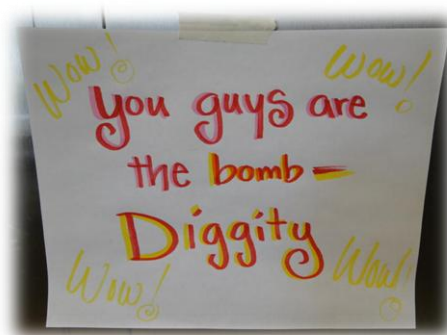 Wow! Wow!
You guys are
the bomb-
Diggity
Wow! Wow!